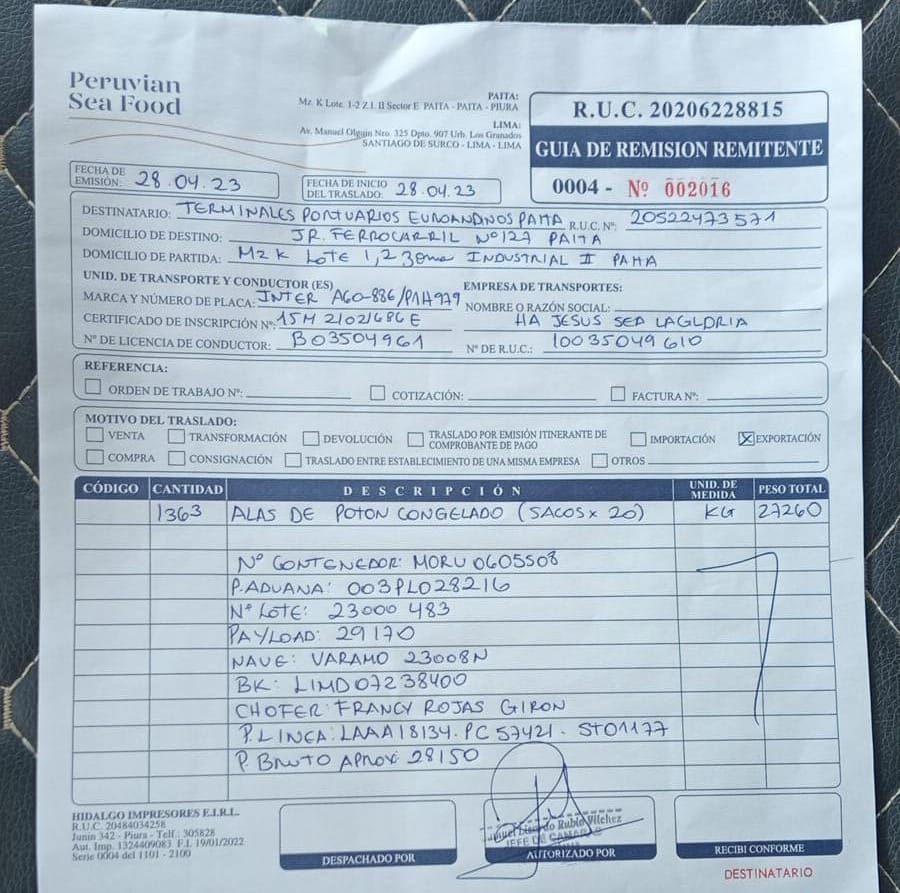 Peruvian
Sea Food
PAITA:
Mz. K Lote. 1-2 Z.I. II Sector E PAITA - PAITA - PIURA
LIMA:
Av. Manuel Olguin Nro. 325 Dpto. 907 Urb. Los Granados
SANTIAGO DE SURCO - LIMA - LIMA
R.U.C. 20206228815
GUIA DE REMISION REMITENTE
0004 - Nº 002016
FECHA DE EMISIÓN: 28.04.23
FECHA DE INICIO DEL TRASLADO: 28.04.23
DESTINATARIO: TERMINALES PORTUARIOS EUROANDINOS PAITA R.U.C. Nº: 20522473571
DOMICILIO DE DESTINO: JR. FERROCARRIL Nº127 PAITA
DOMICILIO DE PARTIDA: MZ K LOTE 1,2 Zona INDUSTRIAL II PAITA
UNID. DE TRANSPORTE Y CONDUCTOR (ES) EMPRESA DE TRANSPORTES:
MARCA Y NÚMERO DE PLACA: INTER AGO-886/P1H979 NOMBRE O RAZÓN SOCIAL:
CERTIFICADO DE INSCRIPCIÓN Nº: 15M21021686E HA JESUS SEA LAGLORIA
Nº DE LICENCIA DE CONDUCTOR: B03504961 Nº DE R.U.C.: 10035049610
REFERENCIA:
ORDEN DE TRABAJO Nº: COTIZACIÓN: FACTURA Nº:
MOTIVO DEL TRASLADO:
VENTA TRANSFORMACIÓN DEVOLUCIÓN TRASLADO POR EMISIÓN ITINERANTE DE COMPROBANTE DE PAGO IMPORTACIÓN X EXPORTACIÓN
COMPRA CONSIGNACIÓN TRASLADO ENTRE ESTABLECIMIENTO DE UNA MISMA EMPRESA OTROS
CÓDIGO CANTIDAD DESCRIPCIÓN UNID. DE MEDIDA PESO TOTAL
1363 ALAS DE POTON CONGELADO (SACOS x 20) KG 27260
Nº CONTENEDOR: MORU 0605508
P.ADUANA: 003PL028216
Nº LOTE: 23000 483
PAYLOAD: 29170
NAVE: VARAMO 23008N
BK: LIMD07238400
CHOFER: FRANCY ROJAS GIRON
P.LINEA: LAAA18134. PC 57421 - ST01177
P. BRUTO APROX: 28150
HIDALGO IMPRESORES E.I.R.L.
R.U.C. 20484034258
Junin 342 - Piura - Telf.: 305828
Aut. Imp. 1324409083 F.I. 19/01/2022
Serie 0004 del 1101 - 2100
DESPACHADO POR
Rubio Vilchez
JEFE DE CAMARAS
AUTORIZADO POR
RECIBI CONFORME
DESTINATARIO